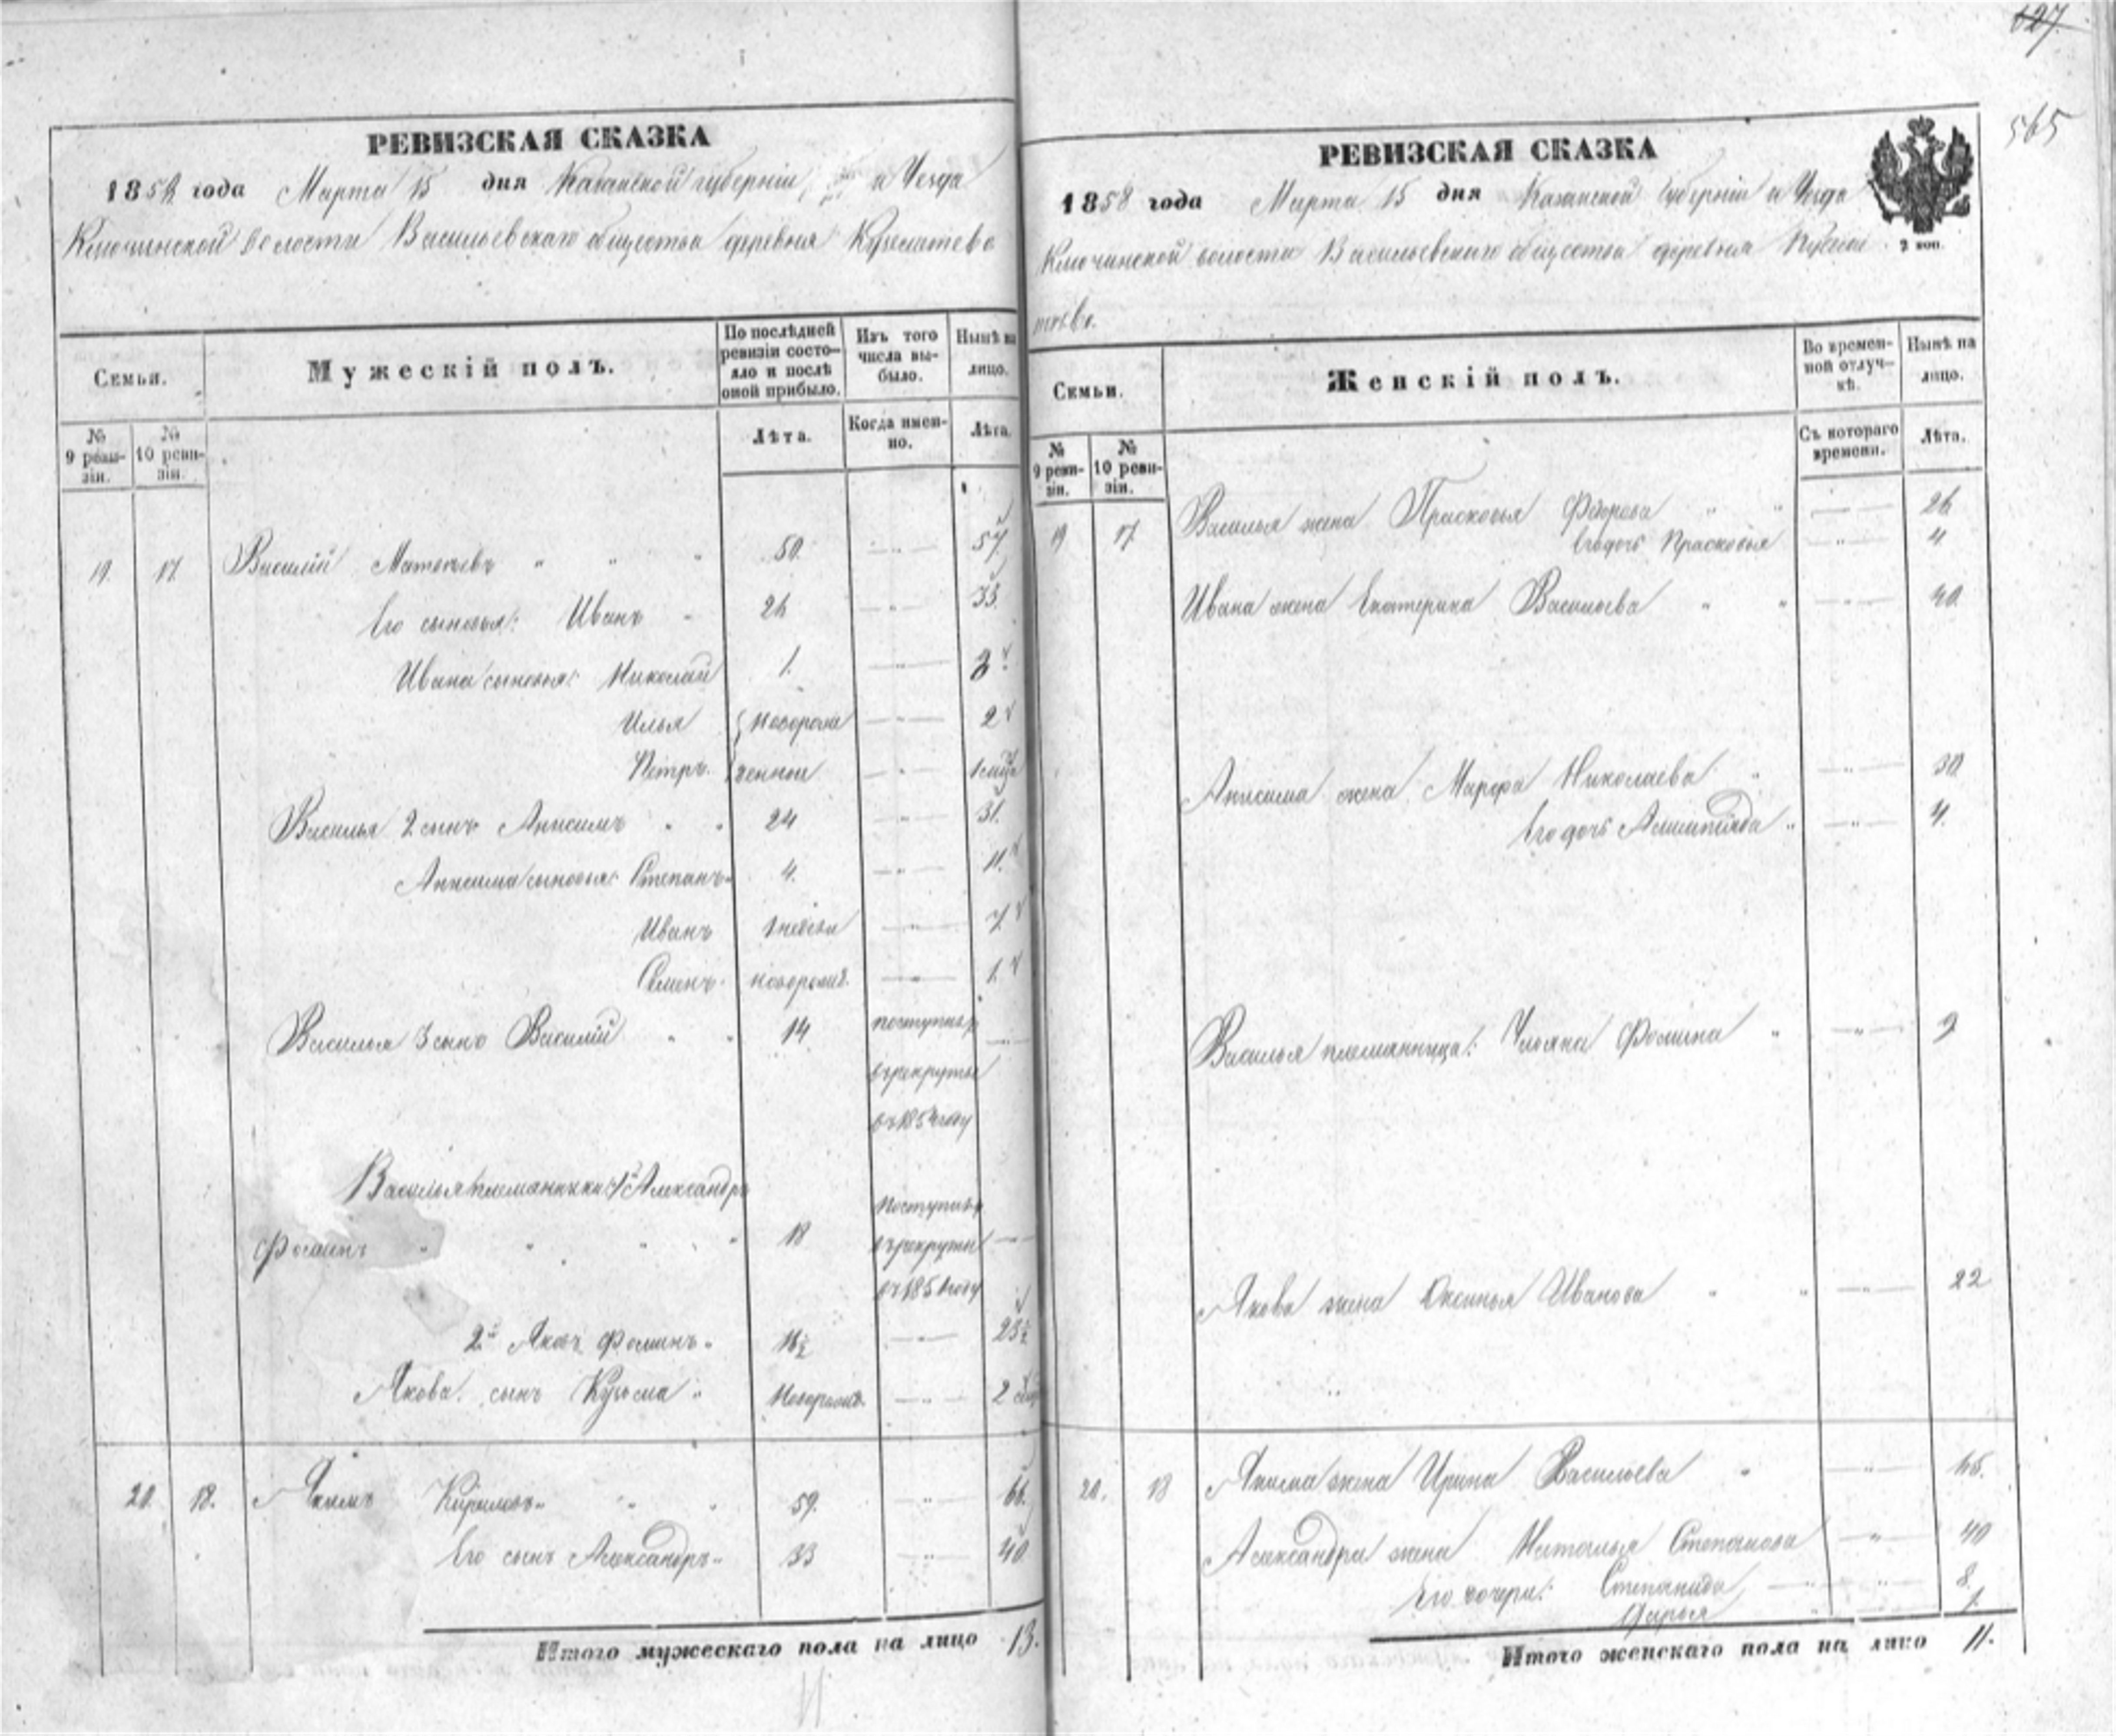 127
565
РЕВИЗСКАЯ СКАЗКА
1858 года Марта 15 дня Казанской губернiи и Уезда
Ключинской волости Васильевскаго общества деревня
Семьи.
Мужескiй полъ.
По послѣдней ревизiи состояло и послѣ оной прибыло.
Изъ того числа выбыло.
Нынѣ на лицо.
№ 9 ревизiи.
№ 10 ревизiи.
Лѣта.
Когда именно.
Лѣта.
19. 17. Василiй Матвѣевъ 50. 57.
Его сыновья: Иванъ 26 33.
Ивана сыновья: Николай 1.
Илья новорож 2
Петръ. денные
Василья 2 сынъ Анисимъ 24 31.
Анисима сыновья: Степанъ 4. 11.
Иванъ 7.
Семенъ. новорожд. 1.
Василья 3 сынъ Василiй 14 поступилъ
въ рекруты
въ 1854 году
Василья племянники: 1й Александръ
Фоминъ 18 поступилъ
въ рекруты
въ 1851 году
2й Яковъ Фоминъ 16½ 23½
Якова сынъ Кузьма новорожд. 2
20. 18. Якимъ Кириловъ 59. 66.
Его сынъ Александръ 33 40.
Итого мужескаго пола на лицо 13.
РЕВИЗСКАЯ СКАЗКА
1858 года Марта 15 дня Казанской губернiи и Уезда
2 коп.
Ключинской волости Васильевскаго общества деревня
Семьи.
Женскiй полъ.
Во временной отлучкѣ.
Нынѣ на лицо.
№ 9 ревизiи.
№ 10 ревизiи.
Съ котораго времени.
Лѣта.
19 17. Василья жена Прасковья Федорова 26
Его дочь Прасковья 4.
Ивана жена Екатерина Васильева 40.
Анисима жена Марфа Николаева 30
Его дочь 4.
Василья племянница: Ульяна Фомина 9
Якова жена Оксинья Иванова 22
20. 18 Якима жена Ирина Васильева 65.
Александра жена Наталья Степанова 40
Его дочери: Степанида 8.
Дарья 1.
Итого женскаго пола на лицо 11.